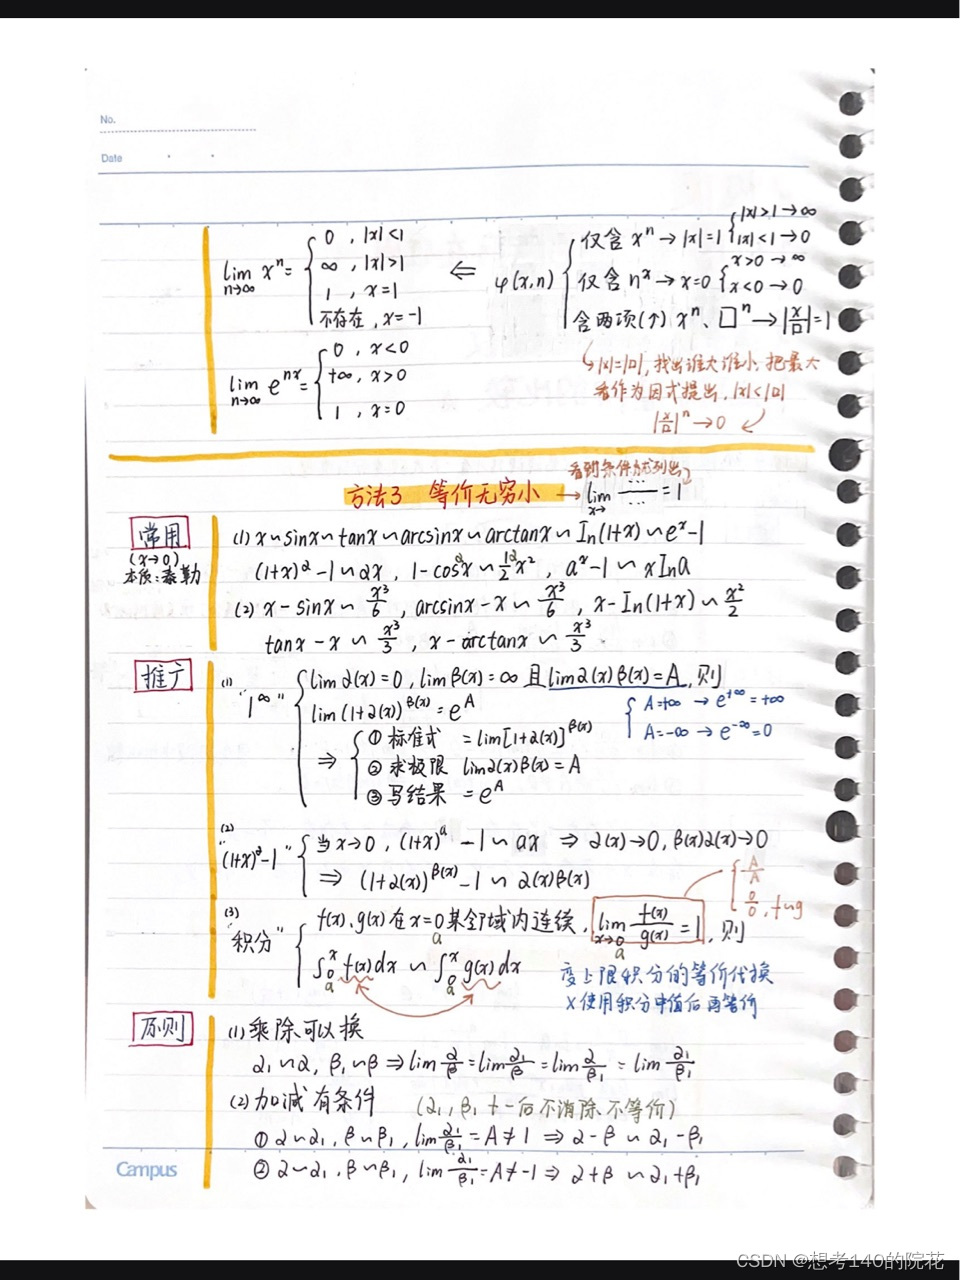 No.
Date
lim n→∞ xⁿ = { 0 , |x|<1
∞ , |x|>1
1 , x=1
不存在 , x=-1
⇐ φ(x,n) { 仅含 xⁿ → |x|=1 { |x|>1 → ∞
|x|<1 → 0
仅含 nˣ → x=0 { x>0 → ∞
x<0 → 0
含两项(↑) xⁿ、□ⁿ → |x/□|=1
↳ |x|=|□|, 找出谁大谁小, 把最大
看作为因式提出, |x|<|□|
|x/□|ⁿ → 0
lim n→∞ eⁿˣ = { 0 , x<0
+∞ , x>0
1 , x=0
看到条件就列出
方法3 等价无穷小 → lim x→ ⋯/⋯ = 1
常用
(x→0)
本质:泰勒
(1) x ~ sinx ~ tanx ~ arcsinx ~ arctanx ~ In(1+x) ~ eˣ-1
(1+x)^α -1 ~ αx , 1-cos^αx ~ α/2 x² , aˣ-1 ~ xIna
(2) x-sinx ~ x³/6 , arcsinx-x ~ x³/6 , x-In(1+x) ~ x²/2
tanx-x ~ x³/3 , x-arctanx ~ x³/3
推广
(1) "1^∞" { limα(x)=0 , limβ(x)=∞ 且 limα(x)β(x)=A , 则
lim(1+α(x))^β(x) = e^A
{ A=+∞ → e^+∞=+∞
A=-∞ → e^-∞=0
⇒ { ① 标准式 = lim[1+α(x)]^β(x)
② 求极限 limα(x)β(x)=A
③ 写结果 = e^A
(2) "(1+x)^α-1" { 当x→0 , (1+x)^a -1 ~ ax ⇒ α(x)→0 , β(x)α(x)→0
⇒ (1+α(x))^β(x) -1 ~ α(x)β(x)
{ A/A
0/0 , f~g
(3) "积分" { f(x), g(x) 在 x=0 某邻域内连续 , lim x→0 f(x)/g(x) = 1 , 则
a a
∫₀ˣ f(x)dx ~ ∫₀ˣ g(x)dx
a a
变上限积分的等价代换
x使用积分中值后再等价
原则
(1) 乘除可以换
α₁~α , β₁~β ⇒ lim α/β = lim α₁/β = lim α/β₁ = lim α₁/β₁
(2) 加减有条件 (α₁, β₁ +-后不消除 不等价)
① α~α₁ , β~β₁ , lim α₁/β₁ = A≠1 ⇒ α-β ~ α₁-β₁
② α~α₁ , β~β₁ , lim α₁/β₁ = A≠-1 ⇒ α+β ~ α₁+β₁
Campus
CSDN @想考140的院花